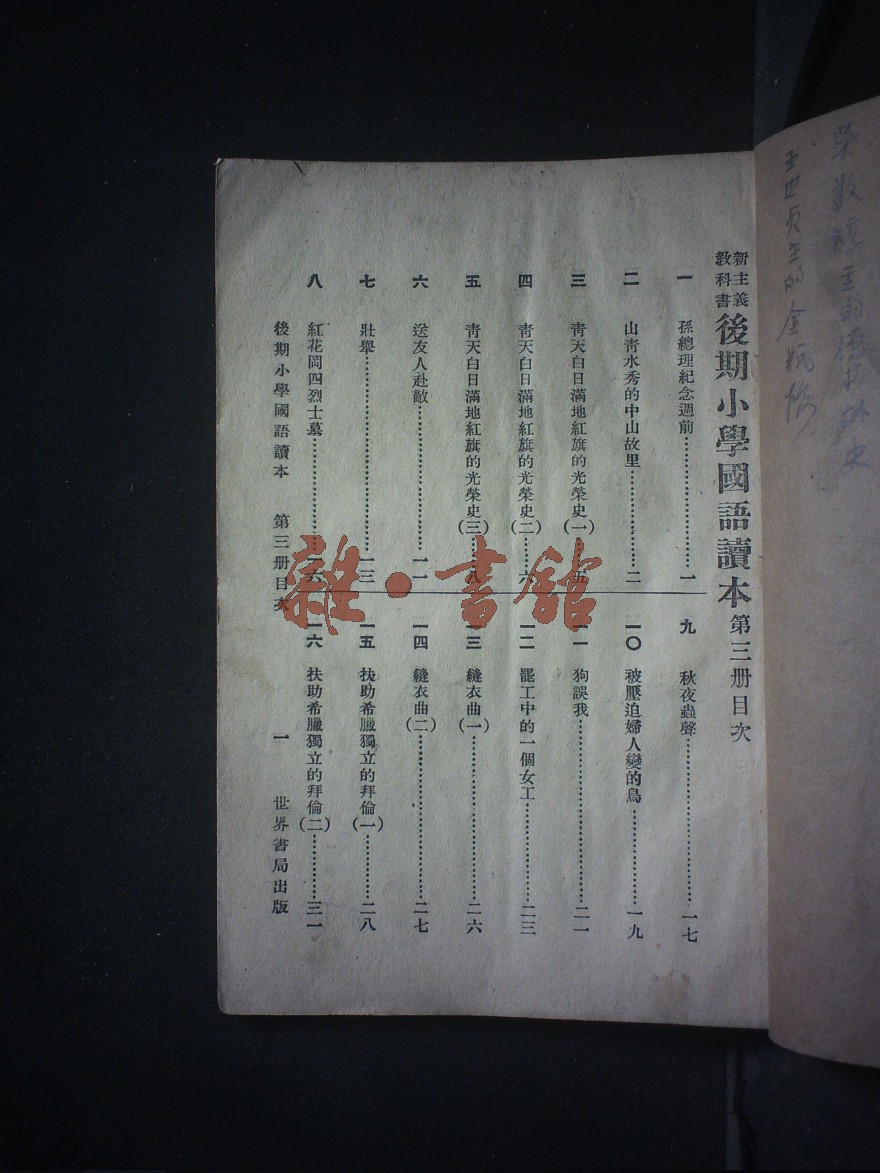 新主義教科書 後期小學國語讀本 第三册目次
一 孫總理紀念週前……一
二 山青水秀的中山故里……二
三 青天白日滿地紅旗的光榮史(一)……五
四 青天白日滿地紅旗的光榮史(二)……六
五 青天白日滿地紅旗的光榮史(三)……八
六 送友人赴敵……一一
七 壯舉……一三
八 紅花岡四烈士墓……一六
九 秋夜蟲聲……一七
一〇 被壓迫婦人變的鳥……一九
一一 狗誤我……二一
一二 罷工中的一個女工……二三
一三 縫衣曲(一)……二六
一四 縫衣曲(二)……二七
一五 扶助希臘獨立的拜倫(一)……二八
一六 扶助希臘獨立的拜倫(二)……三一
後期小學國語讀本 第三册目次 一 世界書局出版
雜·書館